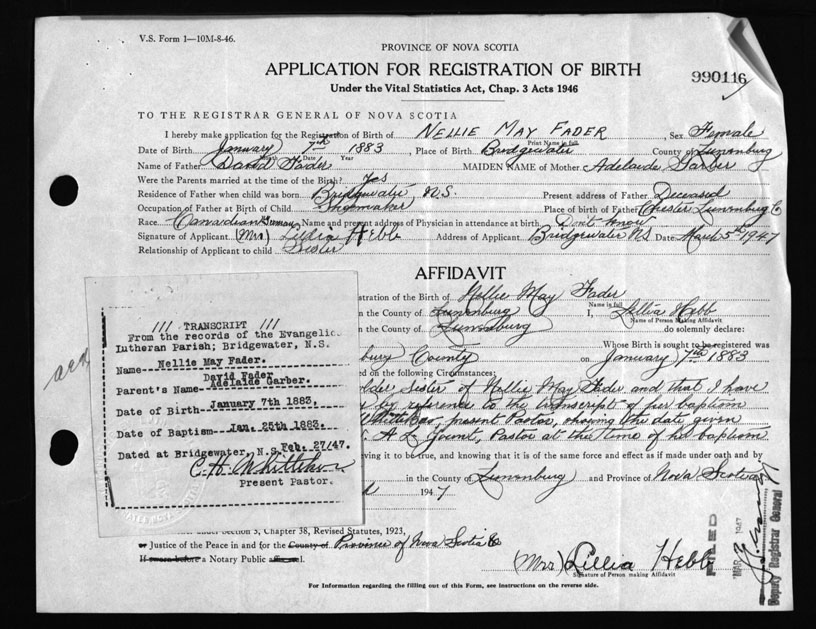 V.S. Form 1—10M-8-46.
PROVINCE OF NOVA SCOTIA
APPLICATION FOR REGISTRATION OF BIRTH
990116
Under the Vital Statistics Act, Chap. 3 Acts 1946
TO THE REGISTRAR GENERAL OF NOVA SCOTIA
I hereby make application for the Registration of Birth of NELLIE MAY FADER, Sex Female
Print Name in full
Date of Birth January 7th 1883, Place of Birth Bridgewater County of Lunenburg
Month Date Year
Name of Father David Fader MAIDEN NAME of Mother Adelaide Garber
Were the Parents married at the time of the Birth? Yes
Residence of Father when child was born Bridgewater N.S. Present address of Father Deceased
Occupation of Father at Birth of Child Shoemaker Place of birth of Father Chester Lunenburg C
Race Canadian German Name and present address of Physician in attendance at birth Don't know
Signature of Applicant (Mrs) Lillia Hebb Address of Applicant Bridgewater NS Date March 5th 1947
Relationship of Applicant to child Sister
AFFIDAVIT
stration of the Birth of Nellie May Fader
Name in full
n the County of Lunenburg I, Lillia Hebb
Name of Person Making Affidavit
n the County of Lunenburg do solemnly declare:
Whose Birth is sought to be registered was
burg County on January 7th 1883
d on the following Circumstances:
lder Sister of Nellie May Fader and that I have
by reference to the transcript of her baptism
present Pastor, showing the date given
A L Yount, Pastor at the time of her baptism
eving it to be true, and knowing that it is of the same force and effect as if made under oath and by
in the County of Lunenburg and Province of Nova Scotia
1947
/// TRANSCRIPT ///
From the records of the Evangelic
Lutheran Parish; Bridgewater, N.S.
Name---Nellie May Fader.
David Fader
Parent's Name--Adelaide Garber.
Date of Birth---January 7th 1883.
Date of Baptism---Jan. 25th 1883.
Dated at Bridgewater, N.S. Feb. 27/47.
Present Pastor.
under Section 5, Chapter 38, Revised Statutes, 1923,
or Justice of the Peace in and for the County of Province of Nova Scotia
If sworn before a Notary Public affix seal.
(Mrs) Lillia Hebb
Signature of Person making Affidavit
FILED
MAR 1947
Deputy Registrar General
For Information regarding the filling out of this Form, see instructions on the reverse side.